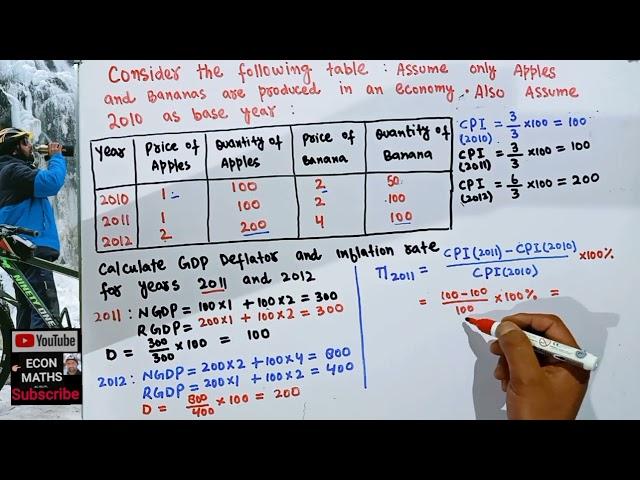 Consider the following table : Assume only Apples
and Bananas are produced in an economy. Also Assume
2010 as base year :
Year | Price of Apples | Quantity of Apples | Price of Banana | Quantity of Banana
2010 | 1 | 100 | 2 | 50
2011 | 1 | 100 | 2 | 100
2012 | 2 | 200 | 4 | 100
CPI (2010) = 3/3 × 100 = 100
CPI (2011) = 3/3 × 100 = 100
CPI (2012) = 6/3 × 100 = 200
Calculate GDP Deflator and Inflation rate
for years 2011 and 2012
2011 : NGDP = 100×1 + 100×2 = 300
RGDP = 200×1 + 100×2 = 300
D = 300/300 × 100 = 100
2012 : NGDP = 200×2 + 100×4 = 800
RGDP = 200×1 + 100×2 = 400
D = 800/400 × 100 = 200
Π2011 = CPI(2011) - CPI(2010) / CPI(2010) × 100%
= 100-100/100 × 100% =
YouTube
ECON
MATHS
Subscribe